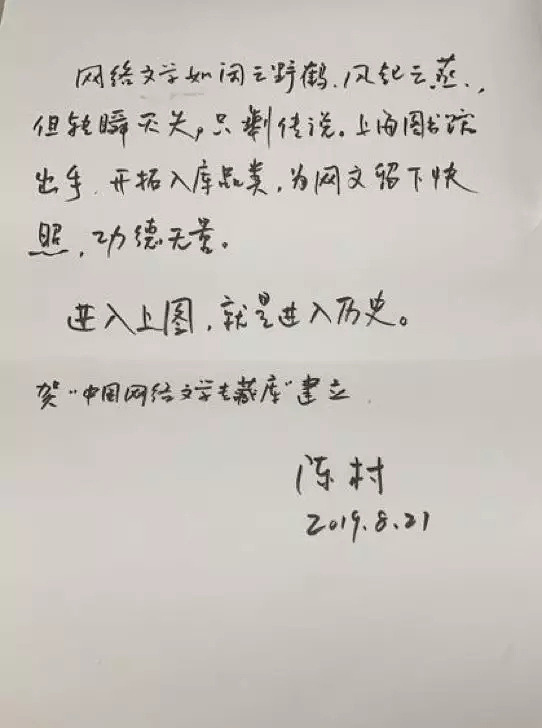 网络文学如闲云野鹤,风起云蒸,
但转瞬灭失,只剩传说。上海图书馆
出手,开拓入库品类,为网文留下快
照,功德无量。
进入上图,就是进入历史。
贺“中国网络文学专藏库”建立
陈村
2019.8.21